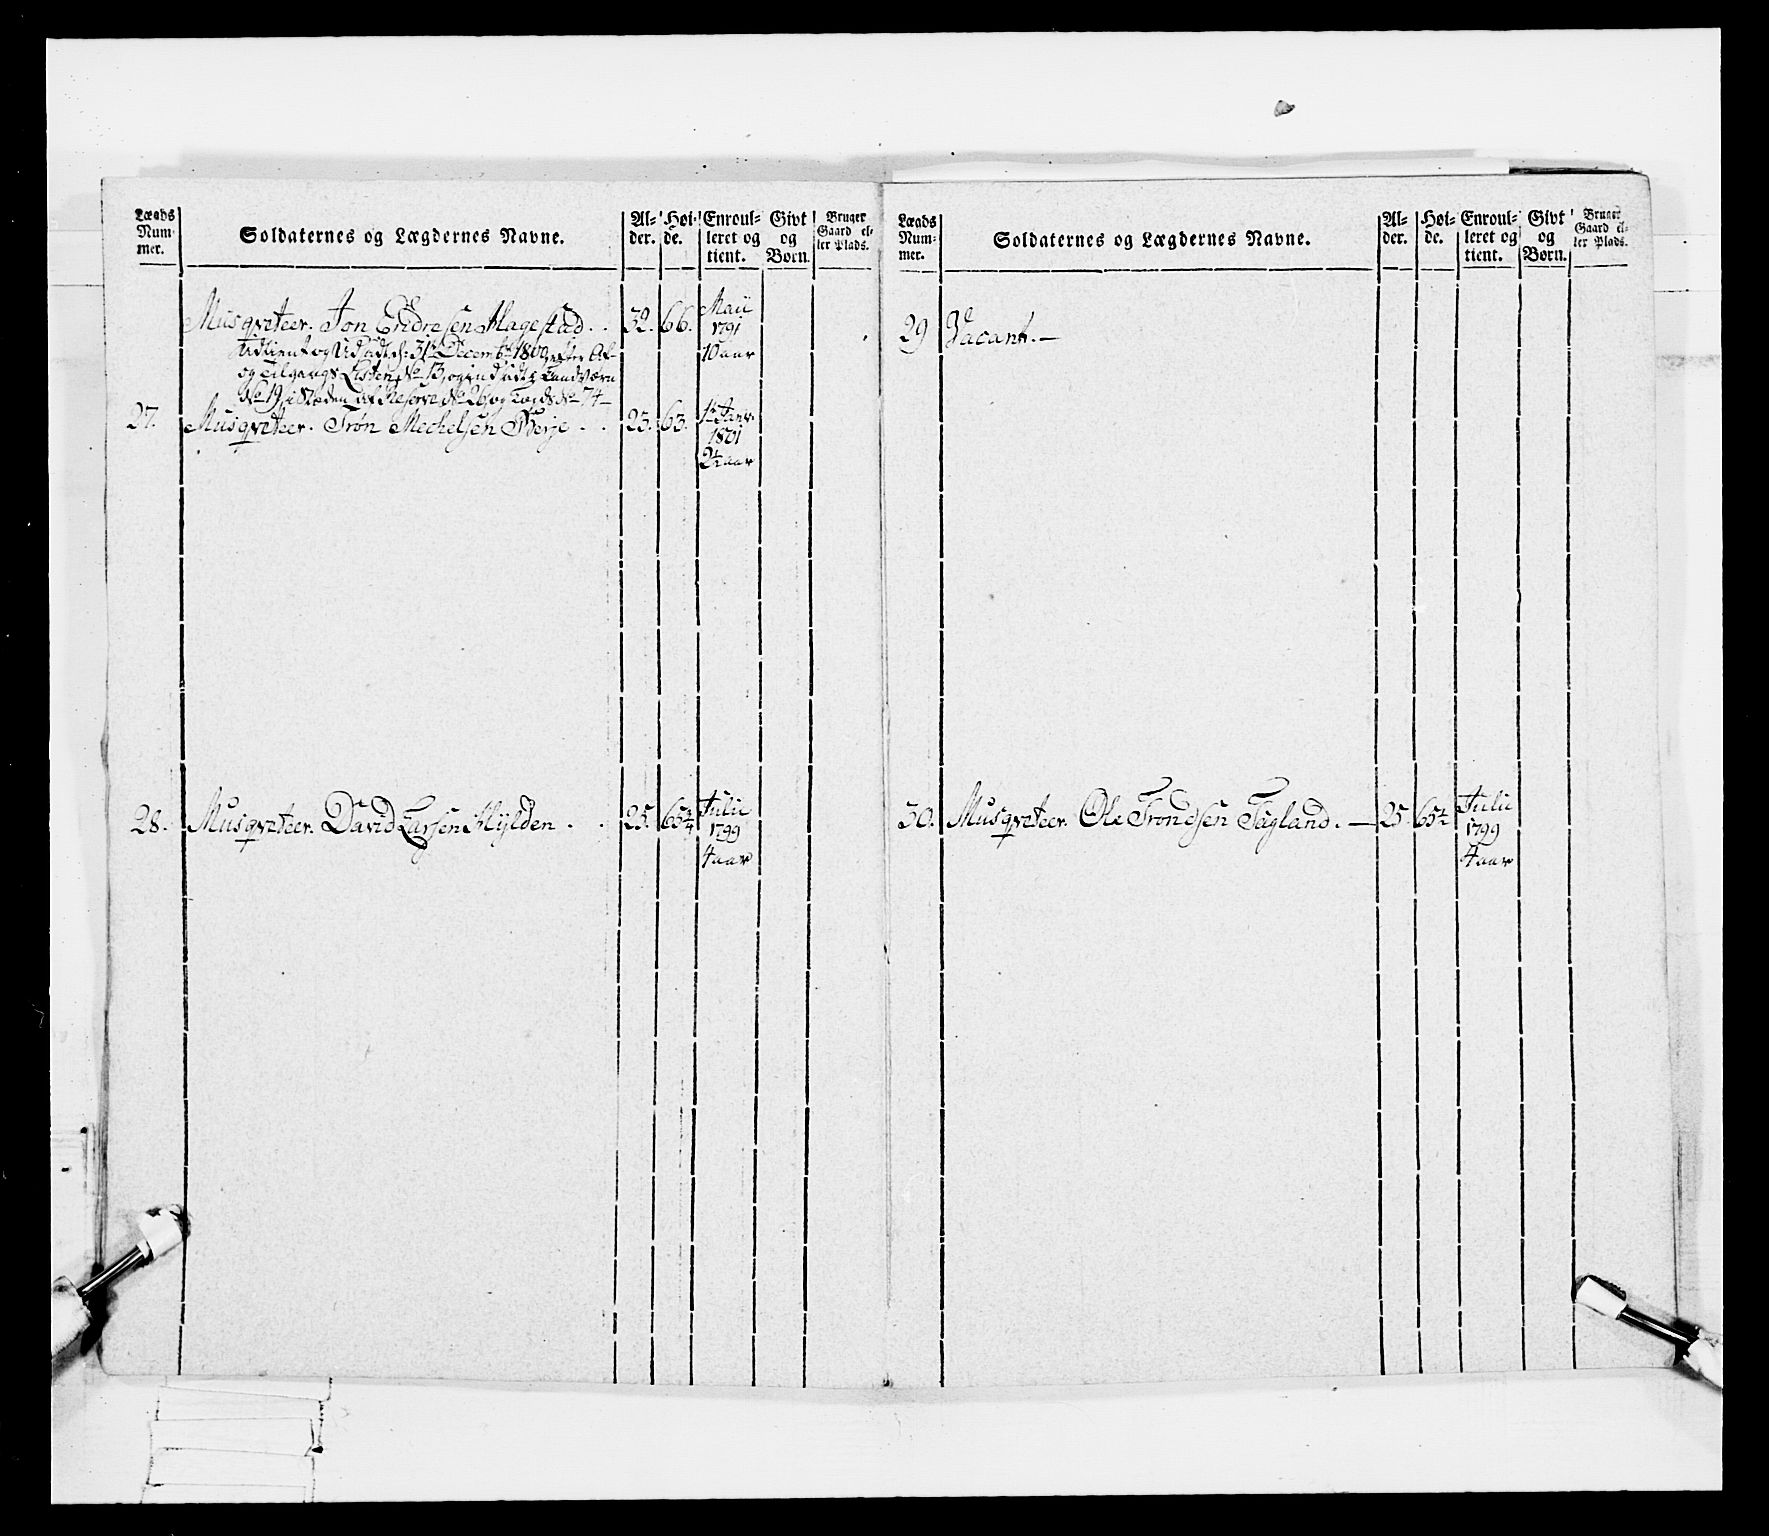 Lægds Num- mer.
Soldaternes og Lægdernes Navne.
Al- der.
Høi- de.
Enroul- leret og tient.
Givt og Børn.
Bruger Gaard el- ler Plads.
Musqveteer. Jon Endresen Hagestad . . 32. 66. Maii 1791 10 aar
Udtient og Udstdt d: 31te Decembr 1800, efter Af-
og Tilgangs Listen No 13, og indstdt Landværn
No 19, i Steden af Reserve No 26, og Lægds No 74 —
27. Musqveteer. Trøn Mechelsen Berje . . 23. 63. 1te Janr. 1801 2½ aar
28. Musqveteer. David Larsen Hylden . . 25. 65¾ Julii 1799 4 aar
Lægds Num- mer.
Soldaternes og Lægdernes Navne.
Al- der.
Høi- de.
Enroul- leret og tient.
Givt og Børn.
Bruger Gaard el- ler Plads.
29 Vacant. —
30. Musqveteer. Ole Trondsen Fagland. — 25. 65½ Julii 1799 4 aar